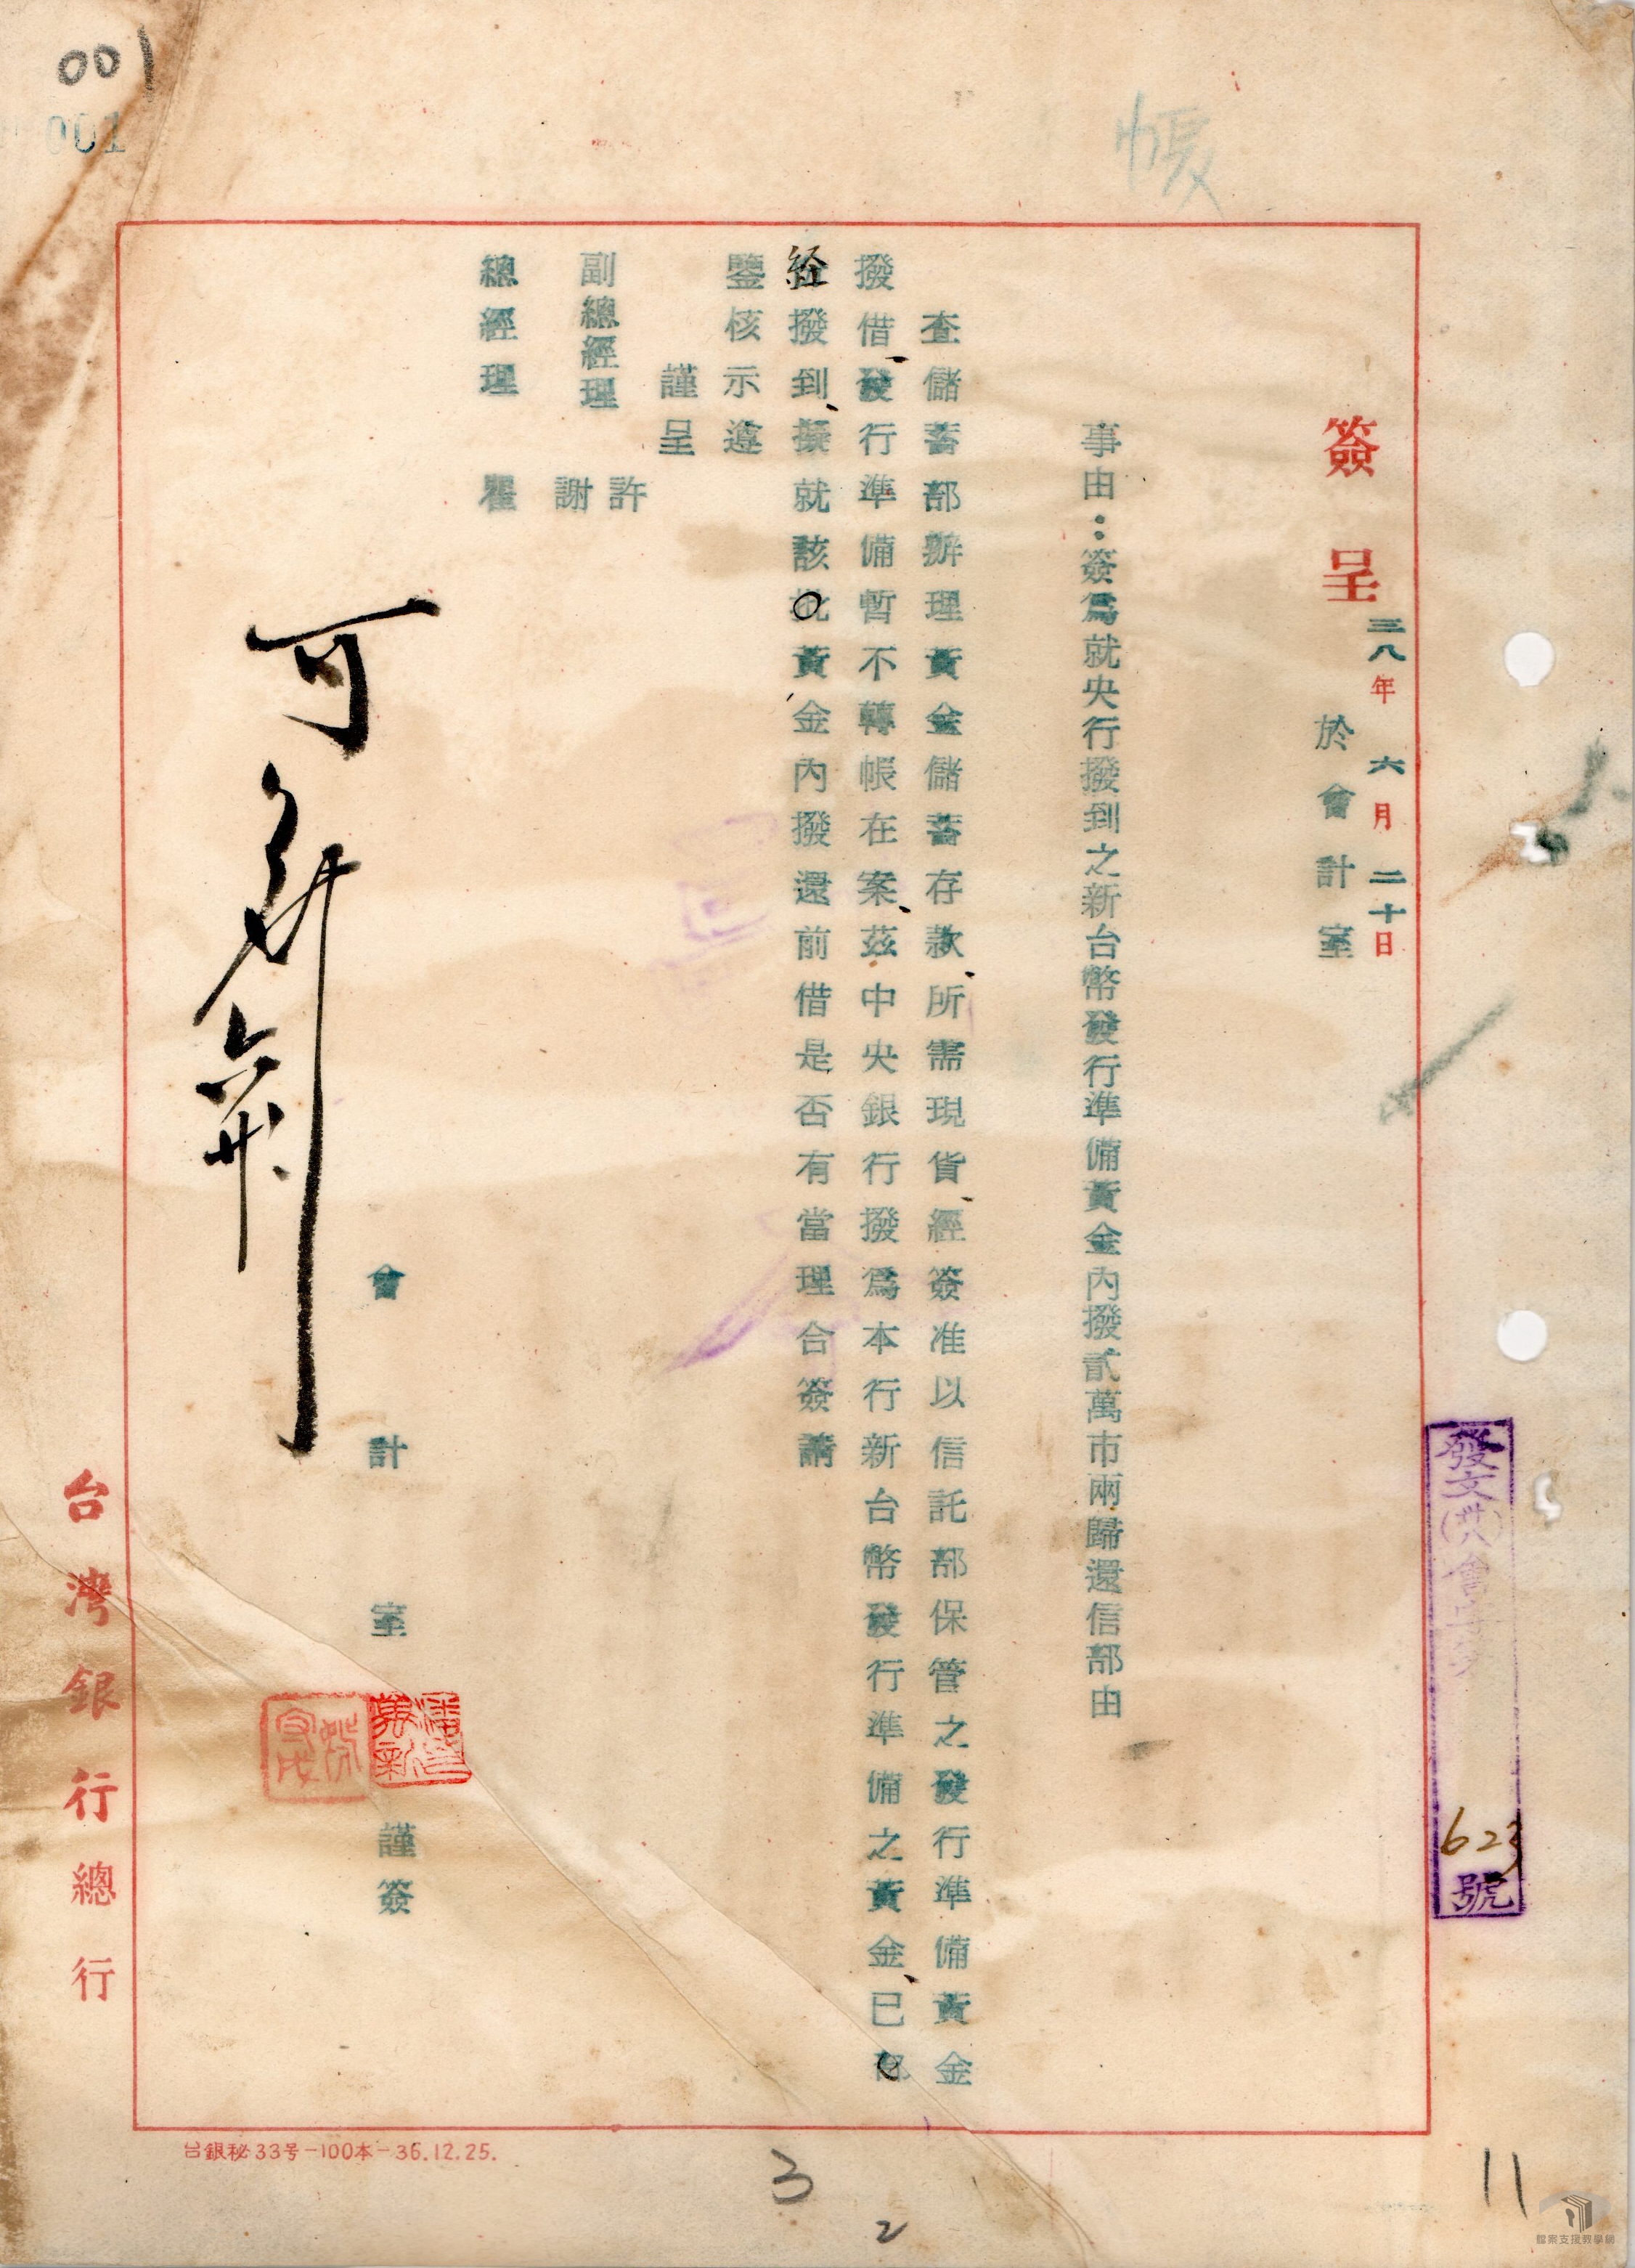 001
001
帳
簽呈
三八年六月二十日
於會計室
事由：簽爲就央行撥到之新台幣發行準備黃金內撥貳萬市兩歸還信部由
查儲蓄部辦理黃金儲蓄存款、所需現貨、經簽准以信託部保管之發行準備黃金
撥借、發行準備暫不轉帳在案、茲中央銀行撥爲本行新台幣發行準備之黃金、已
經撥到、擬就該黃金內撥還前借是否有當理合簽請
鑒核示遵
謹呈
許
副總經理
謝
總經理 瞿
可
會計室
謹簽
台灣銀行總行
發文
623
號
台銀秘33号-100本-36.12.25.
3
2
11
檔案支援教學網